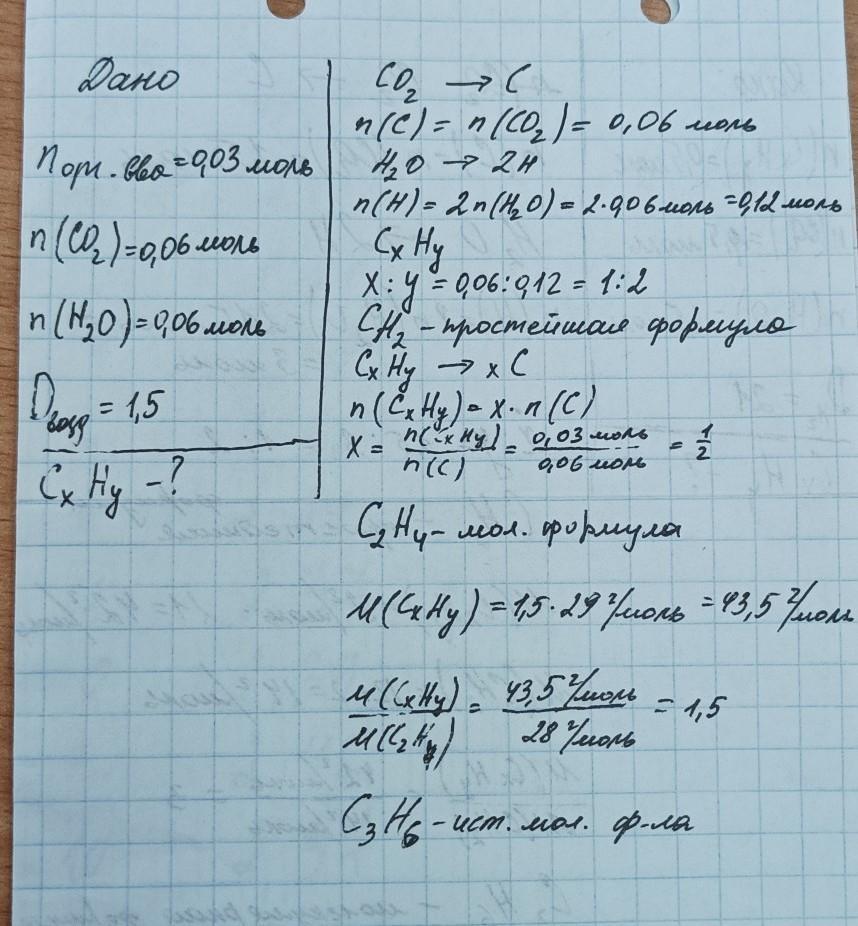 Дано
n орг. в-ва = 0,03 моль
n(CO₂) = 0,06 моль
n(H₂O) = 0,06 моль
Dвозд = 1,5
CxHy - ?
CO₂ → C
n(C) = n(CO₂) = 0,06 моль
H₂O → 2H
n(H) = 2n(H₂O) = 2·0,06 моль = 0,12 моль
CxHy
x : y = 0,06 : 0,12 = 1:2
CH₂ - простейшая формула
CxHy → xC
n(CxHy) = x · n(C)
x = n(CxHy)/n(C) = 0,03 моль/0,06 моль = 1/2
C₂H₄ - мол. формула
M(CxHy) = 1,5 · 29 г/моль = 43,5 г/моль
M(CxHy)/M(C₂H₄) = 43,5 г/моль/28 г/моль = 1,5
C₃H₆ - ист. мол. ф-ла